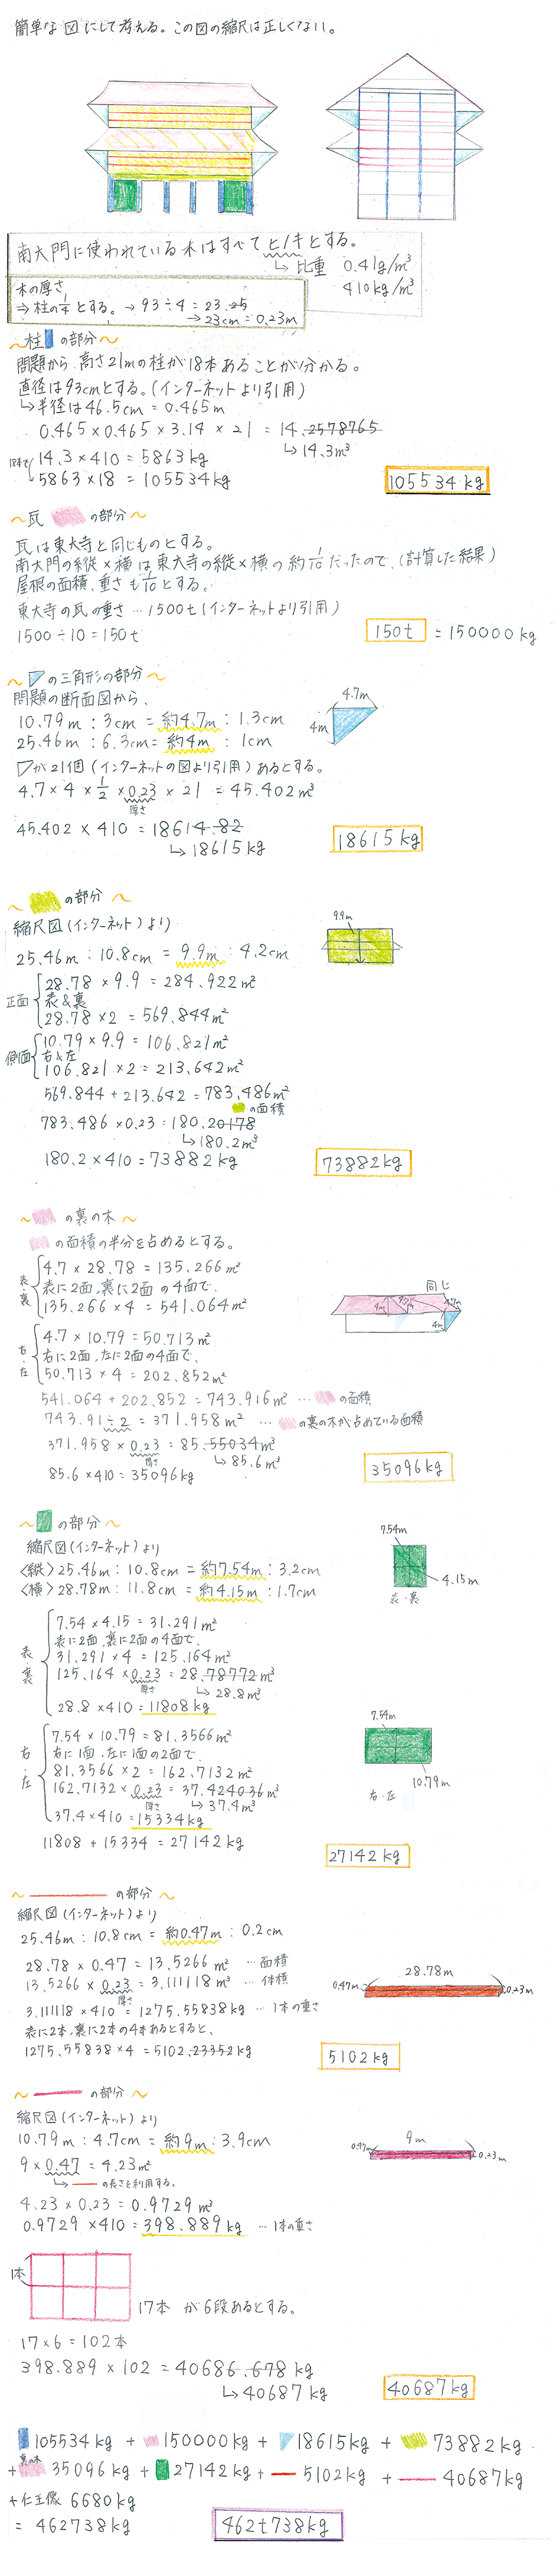 簡単な図にして考える。この図の縮尺は正しくない。
南大門に使われている木はすべてヒノキとする。
↳比重 0.41g/m³
410kg/m³
木の厚さ
⇒柱の1/4とする。→93÷4=23.25
→23cm=0.23m
~柱の部分~
問題から、高さ21mの柱が18本あることが分かる。
直径は93cmとする。(インターネットより引用)
↳半径は46.5cm=0.465m
0.465×0.465×3.14×21=14.2578765
↳14.3m³
14.3×410=5863kg
18本で
5863×18=105534kg
105534kg
~瓦の部分~
瓦は東大寺と同じものとする。
南大門の縦×横は東大寺の縦×横の約1/10だったので、(計算した結果)
屋根の面積、重さも1/10とする。
東大寺の瓦の重さ…1500t(インターネットより引用)
1500÷10=150t
150t=150000kg
~の三角形の部分~
問題の断面図から、
10.79m:3cm=約4.7m:1.3cm
25.46m:6.3cm=約4m:1cm
4.7m
4m
が21個(インターネットの図より引用)あるとする。
4.7×4×1/2×0.23×21=45.402m³
厚さ
45.402×410=18614.82
↳18615kg
18615kg
~の部分~
縮尺図(インターネット)より
25.46m:10.8cm=9.9m:4.2cm
9.9m
正面
28.78×9.9=284.922m²
表&裏
28.78×2=569.844m²
側面
10.79×9.9=106.821m²
右&左
106.821×2=213.642m²
569.844+213.642=783.486m²
の面積
783.486×0.23=180.20178
↳180.2m³
180.2×410=73882kg
73882kg
~の裏の木~
の面積の半分を占めるとする。
表・裏
4.7×28.78=135.266m²
表に2面、裏に2面の4面で、
135.266×4=541.064m²
同じ
4m
4.7m
4m
右・左
4.7×10.79=50.713m²
右に2面、左に2面の4面で、
50.713×4=202.852m²
541.064+202.852=743.916m² …の面積
743.91÷2=371.958m² …の裏の木が占めている面積
371.958×0.23=85.55034m³
厚さ ↳85.6m³
85.6×410=35096kg
35096kg
~の部分~
縮尺図(インターネット)より
〈縦〉25.46m:10.8cm=約7.54m:3.2cm
〈横〉28.78m:11.8cm=約4.15m:1.7cm
7.54m
4.15m
表・裏
表・裏
7.54×4.15=31.291m²
表に2面、裏に2面の4面で、
31.291×4=125.164m²
125.164×0.23=28.78772m³
厚さ ↳28.8m³
28.8×410=11808kg
右・左
7.54×10.79=81.3566m²
右に1面、左に1面の2面で、
81.3566×2=162.7132m²
162.7132×0.23=37.424036m³
厚さ ↳37.4m³
37.4×410=15334kg
7.54m
10.79m
右・左
11808+15334=27142kg
27142kg
~の部分~
縮尺図(インターネット)より
25.46m:10.8cm=約0.47m:0.2cm
28.78×0.47=13.5266m² …面積
13.5266×0.23=3.111118m³ …体積
厚さ
3.111118×410=1275.55838kg …1本の重さ
表に2本、裏に2本の4本あるとすると、
1275.55838×4=5102.23352kg
28.78m
0.47m
0.23m
5102kg
~の部分~
縮尺図(インターネット)より
10.79m:4.7cm=約9m:3.9cm
9×0.47=4.23m²
↳の長さを利用する。
4.23×0.23=0.9729m³
0.9729×410=398.889kg …1本の重さ
9m
0.47m
0.23m
1本
17本が6段あるとする。
17×6=102本
398.889×102=40686.678kg
↳40687kg
40687kg
105534kg+150000kg+18615kg+73882kg
裏の木
+35096kg+27142kg+5102kg+40687kg
+仁王像6680kg
=462738kg
462t738kg